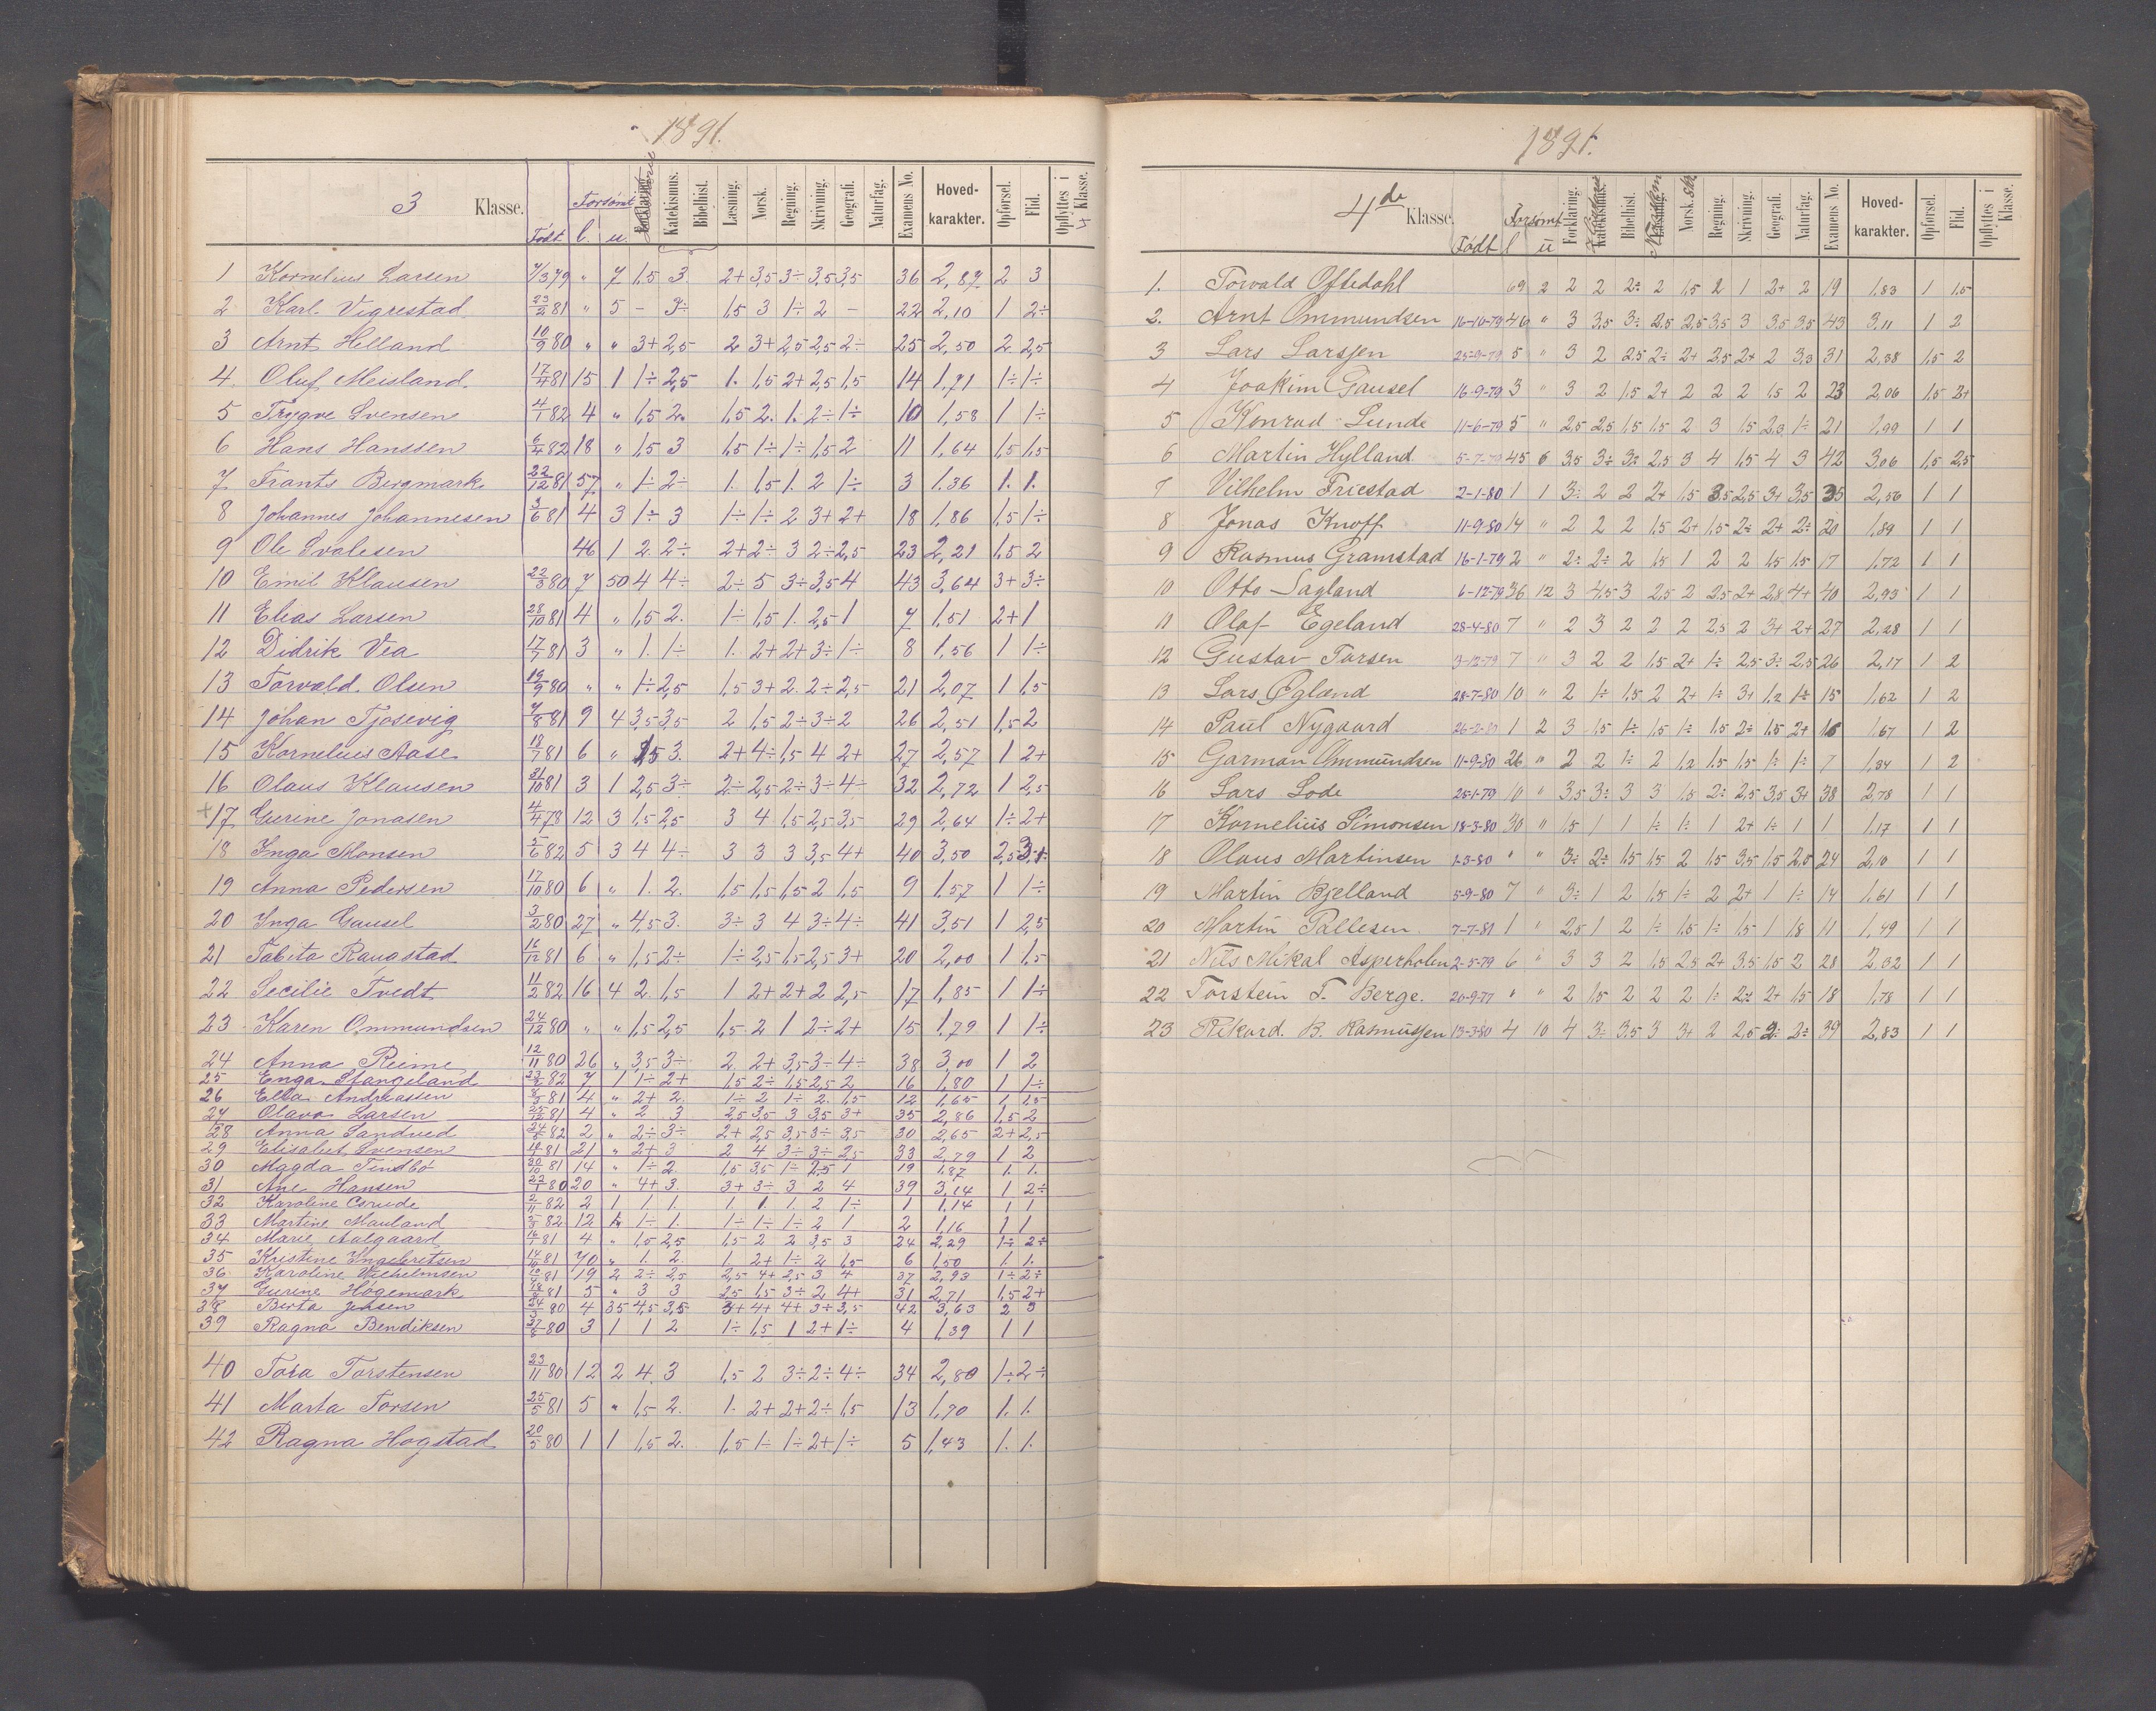 1891.
3 Klasse. Født Forsømt l. u. Forklaring. Katekismus. Bibelhist. Læsning. Norsk. Regning. Skrivning. Geografi. Naturfag. Examens No. Hoved-karakter. Opførsel. Flid. Opflyttes i 4 Klasse.
1 Kornelius Larsen 7/3 79 " 7 1,5 3 2+ 3,5 3÷ 3,5 3,5 36 2,87 2 3
2 Karl Vigrestad 23/2 81 " 5 - 3÷ 1,5 3 1÷ 2 - 22 2,10 1 2÷
3 Arnt Helland 10/9 80 " " 3+ 2,5 2 3+ 2,5 2,5 2÷ 25 2,50 2 2,5
4 Oluf Meisland. 17/4 81 15 1 1÷ 2,5 1. 1,5 2+ 2,5 1,5 14 1,71 1÷ 1÷
5 Trygve Svensen 4/1 82 4 " 1,5 2. 1,5 2. 1. 2÷ 1÷ 10 1,58 1 1÷
6 Hans Hanssen 6/4 82 18 " 1,5 3 1,5 1÷ 1÷ 1,5 2 11 1,64 1,5 1,5
7 Frants Bergmark 22/12 81 57 " 1÷ 2÷ 1. 1,5 1. 2 1÷ 3 1,36 1. 1.
8 Johannes Johannesen 3/6 81 4 3 1÷ 3 1÷ 1÷ 2 3+ 2+ 18 1,86 1,5 1÷
9 Ole Svalesen 46 1 2 2÷ 2+ 2÷ 3 2÷ 2,5 23 2,21 1,5 2
10 Emil Klausen 22/3 80 7 50 4 4÷ 2÷ 5 3÷ 3,5 4 43 3,64 3+ 3÷
11 Elias Larsen 28/10 81 4 " 1,5 2. 1÷ 1,5 1. 2,5 1 7 1,51 2+ 1
12 Didrik Vea 17/7 81 3 " 1. 1÷ 1. 2+ 2+ 3÷ 1÷ 8 1,56 1 1÷
13 Torvald. Olsen 19/9 80 " " 1÷ 2,5 1,5 3+ 2. 2÷ 2,5 21 2,07 1 1,5
14 Johan Tjosevig 7/8 81 9 4 3,5 3,5 2 1,5 2÷ 3÷ 2 26 2,51 1,5 2
15 Kornelius Aase 18/7 81 6 " 1,5 3. 2+ 4÷ 1,5 4 2+ 27 2,57 1 2+
16 Olaus Klausen 31/10 81 3 1 2,5 3÷ 2÷ 2,5 2÷ 3÷ 4÷ 32 2,72 1 2,5
+17 Gurine Jonasen 4/4 78 12 3 1,5 2,5 3 4 1,5 2,5 3,5 29 2,64 1÷ 2+
18 Inga Monsen 5/6 82 5 3 4 4÷ 3 3 3 3,5 4+ 40 3,50 2,5
19 Anna Pedersen 17/10 80 6 " 1. 2. 1,5 1,5 1,5 2 1,5 9 1,57 1 1÷
20 Inga Gausel 3/2 80 27 " 4,5 3. 3÷ 3 4 3÷ 4÷ 41 3,51 1 2,5
21 Tabita Raugstad 16/12 81 6 " 1,5 2÷ 1÷ 2,5 1,5 2,5 3+ 20 2,00 1 1,5
22 Secilie Tvedt 11/2 82 16 4 2 1,5 1 2+ 2+ 2 2,5 17 1,85 1 1÷
23 Karen Ommundsen 24/12 80 " " 1,5 2,5 1,5 2 1 2÷ 2+ 15 1,79 1 1÷
24 Anna Reime 12/11 80 26 " 3,5 3÷ 2 2+ 3,5 3÷ 4÷ 38 3,00 1 2
25 Enga Stangeland 82 7 1 1÷ 2+ 1,5 2÷ 1,5 2,5 2 16 1,80 1 1÷
26 Ella Andreassen 81 4 " 2+ 2. 1÷ 2 1÷ 2. 1,5 12 1,65 1 1,5
27 Olava Larsen 81 4 " 2 3 2,5 3,5 3 3,5 3+ 35 2,86 1,5 2
28 Anna Sandved 82 2 " 2÷ 3÷ 2+ 2,5 3,5 3÷ 3,5 30 2,65 2+ 2,5
29 Elisabet Svensen 81 21 " 2+ 3 2 4 3÷ 3÷ 2,5 33 2,79 1 2
30 Magda Tindbö 30/10 81 14 " 1÷ 2. 1,5 3,5 1÷ 2,5 1 19 1,87 1. 1.
31 Ane Hansen 22/1 80 20 " 4+ 3. 3+ 3÷ 3 2 4 39 3,14 1 2÷
32 Karoline 2/11 82 2 1 1. 1. 1. 1. 1. 2 1÷ 1 1,14 1 1
33 Martine Mauland 82 12 1÷ 1. 1÷ 1÷ 1÷ 2 1 2 1,16 1 1
34 Marie Aalgaard 81 4 " 1,5 2,5 1,5 2 2 3,5 3 24 2,29 1÷ 2÷
35 Kristine Ingebretsen 81 70 " 1. 2. 1. 2+ 1÷ 2 1,5 6 1,50 1. 1.
36 Karoline Wilhelmsen 81 19 2 2÷ 2,5 2,5 4+ 2,5 3 4 37 2,93 1÷ 2÷
37 Gurine Høgemark 81 5 " 3 3 2,5 1,5 3÷ 2 4+ 31 2,71 1,5 2+
38 Berta Jensen 80 4 35 4,5 3,5 3+ 4+ 4+ 3+ 3,5 42 3,63 2 3
39 Ragna Bendiksen 80 3 1 1 2 1÷ 1,5 1 2+ 1÷ 4 1,39 1 1
40 Tora Torstensen 23/11 80 12 2 4 3 1,5 2 3÷ 2÷ 4÷ 34 2,80 1÷ 2÷
41 Marta Torsen 25/5 81 5 " 1,5 2. 1. 2+ 2+ 2÷ 1,5 13 1,70 1. 1.
42 Ragna Hogstad 20/5 80 1 1 1,5 2. 1,5 1÷ 1÷ 2+ 1÷ 5 1,43 1. 1.
1891.
4de Klasse. Født Forsømt l u Forklaring. Katekismus. Bibelhist. Læsning. Norsk. Regning. Skrivning. Geografi. Naturfag. Examens No. Hoved-karakter. Opførsel. Flid. Opflyttes i Klasse.
1. Torvald Oftedahl 69 2 2 2 2÷ 2 1,5 2 1 2+ 2 19 1,83 1 1,5
2. Arnt Ommundsen 16-10-79 46 " 3 3,5 3÷ 2,5 2,5 3,5 3 3,5 3,5 43 3,11 1 2
3 Lars Larssen 25-9-79 5 " 3 2 2,5 2÷ 2+ 2,5 2+ 2 3,3 31 2,38 1,5 2
4 Joakim Gausel 16-9-79 3 " 3 2 1,5 2+ 2 2 2 1,5 2 23 2,06 1,5 2+
5 Konrad Lunde 11-6-79 5 " 2,5 2,5 1,5 1,5 2 3 1,5 2,3 1÷ 21 1,99 1 1
6 Martin Hylland 5-7-79 45 6 3,5 3÷ 3÷ 2,5 3 4 1,5 4 3 42 3,06 1,5 2,5
7 Vilhelm Friestad 2-1-80 1 1 3÷ 2 2 2+ 1,5 3,5 2,5 3+ 3,5 35 2,56 1 1
8 Jonas Knoff 11-9-80 14 " 2 2 2 1,5 2+ 1,5 2÷ 2+ 2÷ 20 1,89 1 1
9 Rasmus Gramstad 16-1-79 2 " 2÷ 2÷ 2 1,5 1 2 2 1,5 1,5 17 1,72 1 1
10 Otto Sagland 6-12-79 36 12 3 4,5 3 2,5 2 2,5 2+ 2,8 4+ 40 2,93 1 1
11 Olaf Egeland 28-4-80 7 " 2 3 2 2 2 2,5 2 3+ 2+ 27 2,28 1 1
12 Gustav Torsen 3-12-79 7 " 3 2 2 1,5 2+ 1÷ 2,5 3÷ 2,5 26 2,17 1 2
13 Lars Egland 28-7-80 10 " 2 1÷ 1,5 2 2+ 1÷ 3+ 1,2 1÷ 15 1,62 1 2
14 Paul Nygaard 26-2-80 1 2 3 1,5 1÷ 1,5 1÷ 1,5 2÷ 1,5 2+ 16 1,67 1 2
15 Garman Ommundsen 11-9-80 26 " 2 2 1÷ 2 1,2 1,5 1,5 1÷ 1÷ 7 1,34 1 2
16 Lars Lode 25-1-79 10 " 3,5 3÷ 3 3 1,5 2÷ 2,5 3,5 3+ 38 2,78 1 1
17 Kornelius Simonsen 18-3-80 30 " 1,5 1 1 1÷ 1÷ 1 2+ 1÷ 1 1 1,17 1 1
18 Olaus Martinsen 1-3-80 " " 3÷ 2÷ 1,5 1,5 2 1,5 3,5 1,5 2,5 24 2,10 1 1
19 Martin Bjelland 5-9-80 7 " 3÷ 1 2 1,5 1÷ 2 2+ 1 1÷ 14 1,61 1 1
20 Martin Pallesen 7-7-81 1 " 2,5 1 2 1÷ 1,5 1÷ 1,5 1 1,8 11 1,49 1 1
21 Nils Mikal Asperholen 2-5-79 6 " 3 3 2 1,5 2,5 2+ 3,5 1,5 2 28 2,32 1 1
22 Torstein T. Berge. 20-9-77 " " 2 1,5 2 2 2 1÷ 2÷ 2+ 1,5 18 1,78 1 1
23 Rikard. B. Rasmussen 13-3-80 4 10 4 3÷ 3,5 3 3+ 2 2,5 2÷ 2÷ 39 2,83 1 1